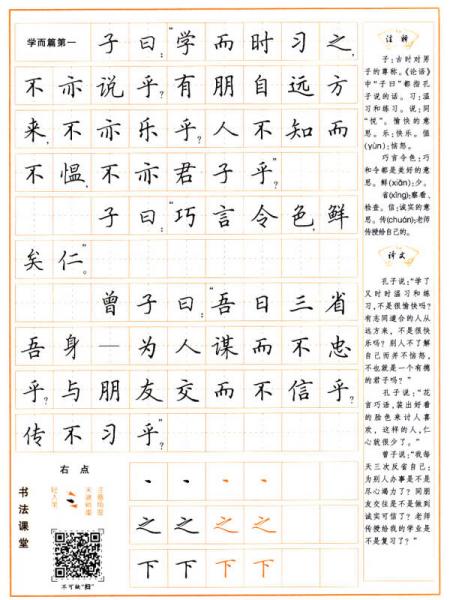 学而篇第一 子曰:“学而时习之,
不亦说乎?有朋自远方
来,不亦乐乎?人不知而
不愠,不亦君子乎?”
子曰:“巧言令色,鲜
矣仁。”
曾子曰:“吾日三省
吾身—为人谋而不忠
乎?与朋友交而不信乎?
传不习乎?”
注释
子:古时对男
子的尊称。《论语》
中“子曰”都指孔
子说的话。习:温
习和练习。说:同
“悦”。愉快的意
思。乐:快乐。愠
(yùn):恼怒。
巧言令色:巧
和令都是美好的意
思。鲜(xiǎn):少。
省(xǐng):察看、
检查。信:诚实的意
思。传(chuán):老师
传授给自己的。
译文
孔子说:“学了
又时时温习和练
习,不是很愉快吗?
有志同道合的人从
远方来,不是很快
乐吗?别人不了解
自己而并不恼怒,
不也就是一个有德
的君子吗?”
孔子说:“花
言巧语,装出好看
的脸色来讨人喜
欢,这样的人,仁
心就很少了。”
曾子说:“我每
天三次反省自己:
为别人办事是不是
尽心竭力了?同朋
友交往是不是做到
诚实可信了?老师
传授给我的学业是
不是复习了?”
书法课堂
右点
不可缺“扫”
之之之之
下下下下